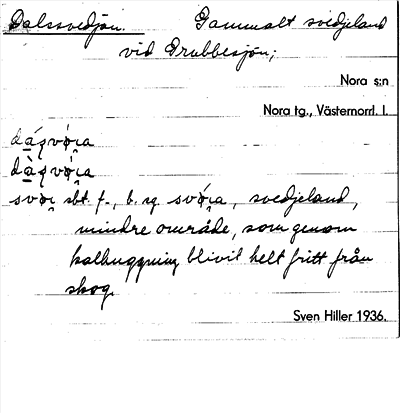 Dalssvedjan. Gammalt svedjeland
vid Grubbesjön;
Nora s:n
Nora tg., Västernorrl. l.
sbt. f., b. sg. svedjeland,
mindre område, som genom
kalhuggning blivit helt fritt från
skog
Sven Hiller 1936.